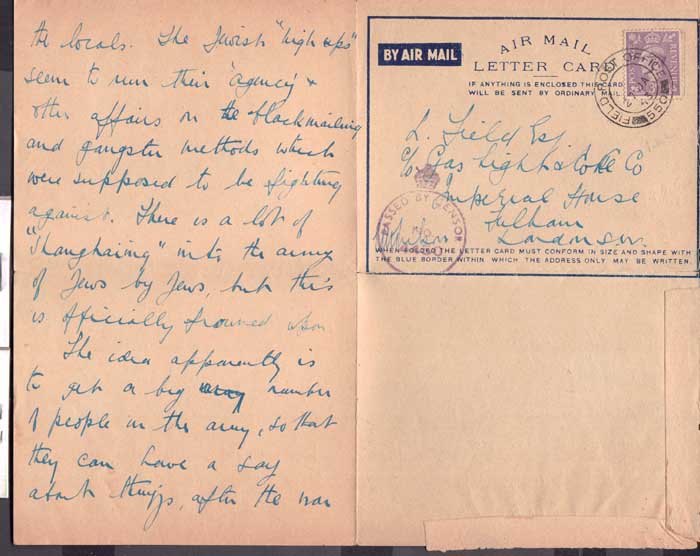 the locals. The Jewish "high ups"
seem to run their "agency" &
other affairs on the blackmailing
and gangster methods which
were supposed to be fighting
against. There is a lot of
"Shanghaiing" into the army
of Jews by Jews, but this
is officially frowned upon
The idea apparently is
to get a big number
of people in the army, so that
they can have a say
about things, after the war
BY AIR MAIL
AIR MAIL
LETTER CARD
IF ANYTHING IS ENCLOSED THIS CARD
WILL BE SENT BY ORDINARY MAIL
REVENUE
FIELD POST OFFICE
550
L. Field Esq
c/o Gas Light & Coke Co
Imperial House
Fulham
London SW.
PASSED BY CENSOR
NO
WHEN FOLDED THE LETTER CARD MUST CONFORM IN SIZE AND SHAPE WITH
THE BLUE BORDER WITHIN WHICH THE ADDRESS ONLY MAY BE WRITTEN.